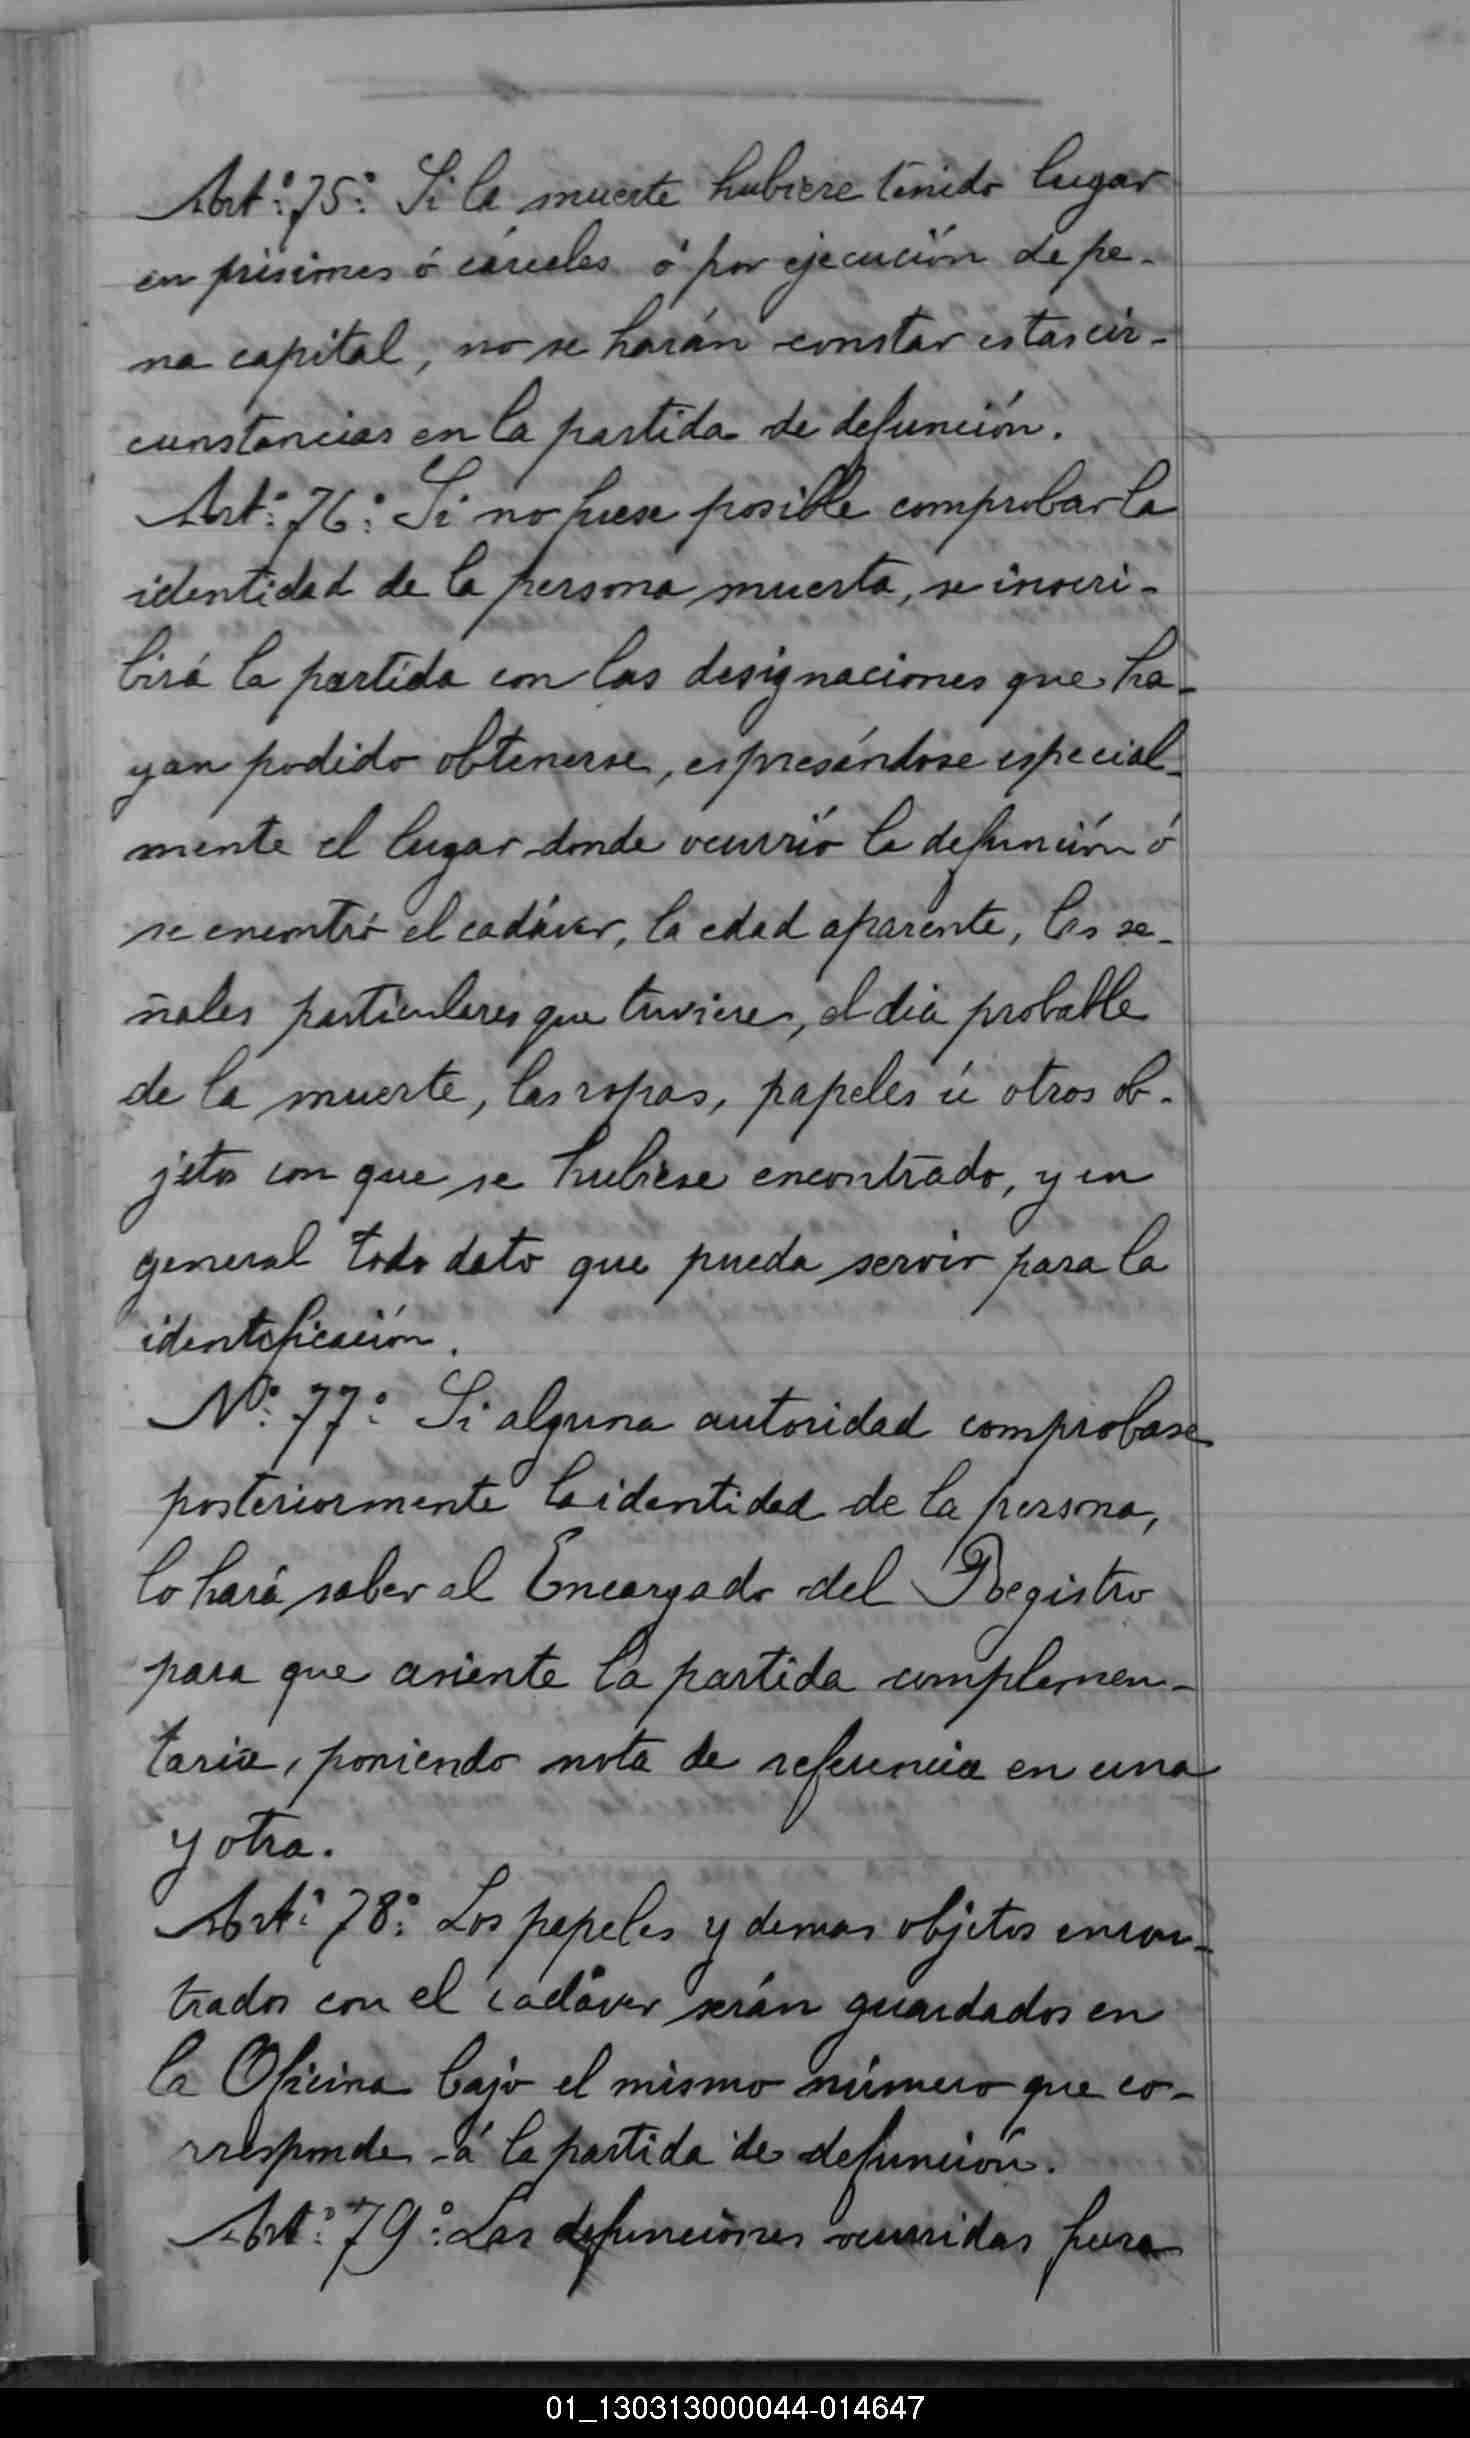 Art.º 75.º Si la muerte hubiere tenido lugar
en prisiones ó cárceles ó por ejecución de pe-
na capital, no se harán constar estas cir-
cunstancias en la partida de defunción.
Art.º 76.º Si no fuese posible comprobar la
identidad de la persona muerta, se inscri-
birá la partida con las designaciones que ha-
yan podido obtenerse, espresándose especial-
mente el lugar donde ocurrió la defunción ó
se encontró el cadáver, la edad aparente, las se-
ñales particulares que tuviere, el dia probable
de la muerte, las ropas, papeles ú otros ob-
jetos con que se hubiese encontrado, y en
general todo dato que pueda servir para la
identificación.
N.º 77.º Si alguna autoridad comprobase
posteriormente la identidad de la persona,
lo hará saber al Encargado del Registro
para que asiente la partida complemen-
taria, poniendo nota de referencia en una
y otra.
Art.º 78.º Los papeles y demas objetos encon-
trados con el cadáver serán guardados en
la Oficina bajo el mismo número que co-
rresponde á la partida de defunción.
Art.º 79.º Las defunciones ocurridas fuera
01_130313000044-014647